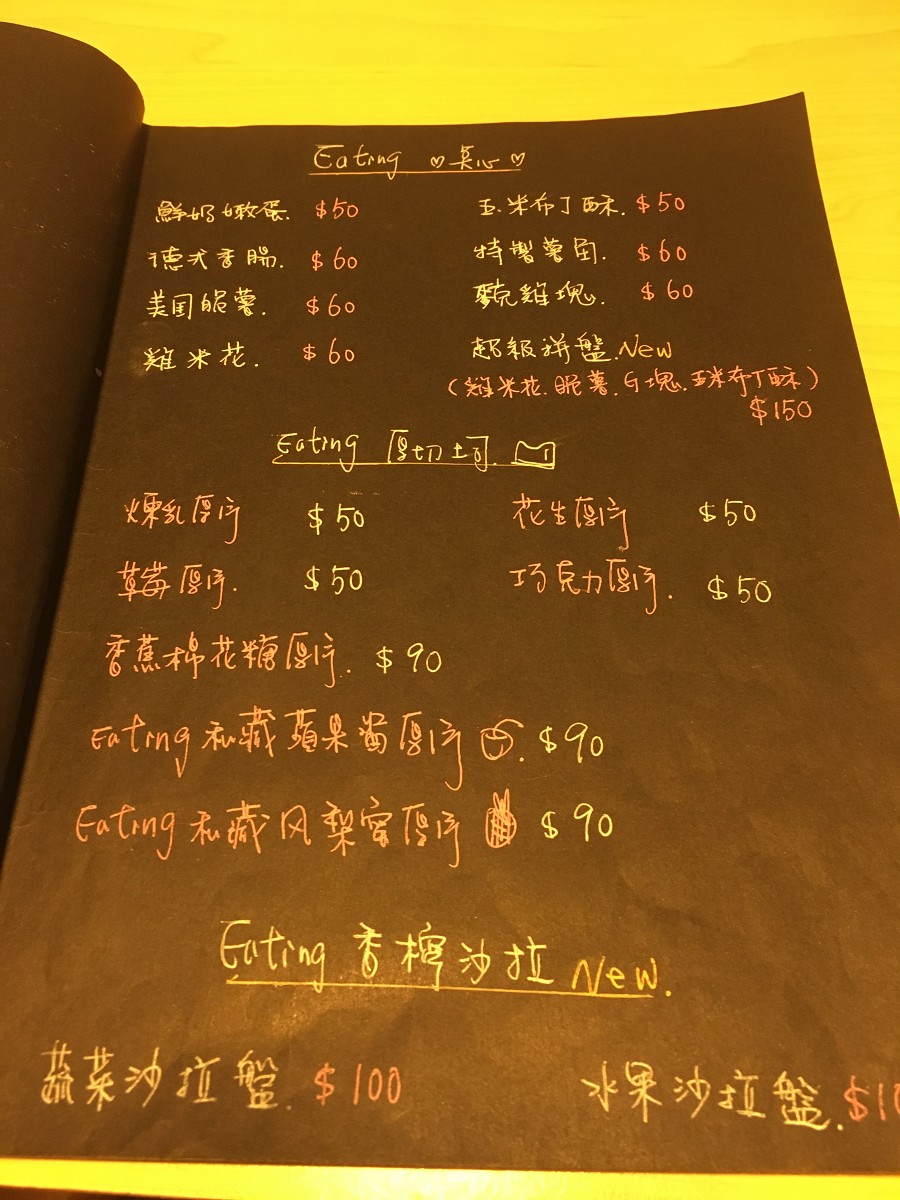 Eating ♡点心♡
鮮奶嫩蛋. $50 玉米布丁酥. $50
德式香腸. $60 特製薯角. $60
美国脆薯. $60 麥克雞塊. $60
雞米花. $60 超級拼盤. New
(雞米花.脆薯.G塊.玉米布丁酥)
$150
Eating 厚切土司.
煉乳厚片 $50 花生厚片 $50
草莓厚片. $50 巧克力厚片. $50
香蕉棉花糖厚片. $90
Eating 私藏蘋果醬厚片. $90
Eating 私藏风梨蜜厚片 $90
Eating 香檸沙拉 New.
蔬菜沙拉盤. $100 水果沙拉盤.